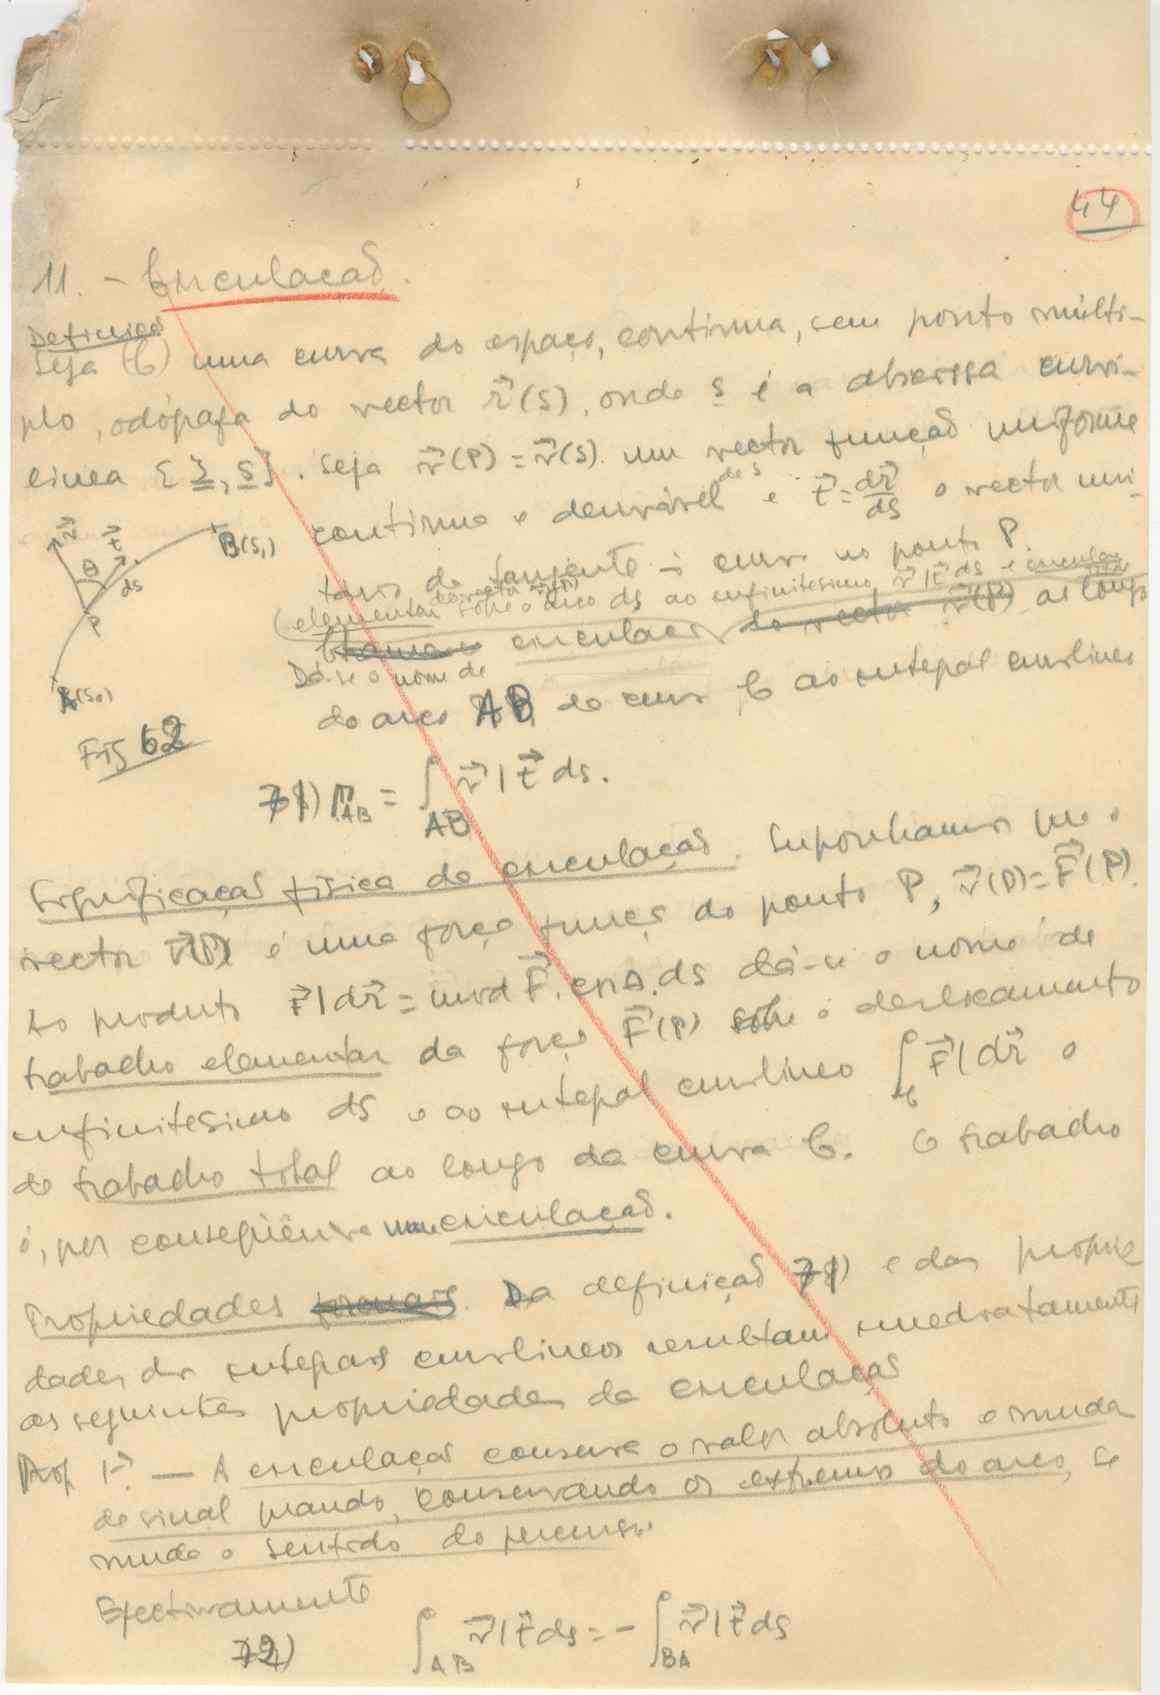 44
11. - Circulação.
Definição
Seja (C) uma curva do espaço, contínua, sem ponto múlti-
plo, odógrafa do vector r⃗(s), onde s é a abscissa curvi-
línea {Σ, s}. Seja v⃗(P) = v⃗(s) um vector função uniforme
contínua e derivável de s e t⃗ = dr⃗/ds o vector uni-
tário da tangente à curva no ponto P.
(elementar do vector v⃗(P) sobre o arco ds ao infinitésimo v⃗|t⃗ ds e circulação
circulação do vector v⃗(P) ao longo
Dá-se o nome de
do arco AB, da curva C ao integral curvilíneo
v⃗ t⃗ θ ds P B(s₁) A(s₀)
Fig 62
71) Γ_AB = ∫_AB v⃗ | t⃗ ds.
Significação física da circulação. Suponhamos que o
vector v⃗(P) é uma força função do ponto P, v⃗(P) = F⃗(P).
Ao produto F⃗ | dr⃗ = mod F⃗. cos θ. ds dá-se o nome de
trabalho elementar da força F⃗(P) sobre o deslocamento
infinitésimo ds e ao integral curvilíneo ∫_C F⃗ | dr⃗ o
de trabalho total ao longo da curva C. O trabalho
é, por conseqüência uma circulação.
Propriedades formais. Da definição 71) e das proprie
dades dos integrais curvilíneos resultam imediatamente
as seguintes propriedades da circulação
Prop 1ª — A circulação conserva o valor absoluto e muda
de sinal quando, conservando os extremos do arco, se
muda o sentido do percurso.
Efectivamente
72) ∫_AB v⃗ | t⃗ ds = - ∫_BA v⃗ | t⃗ ds